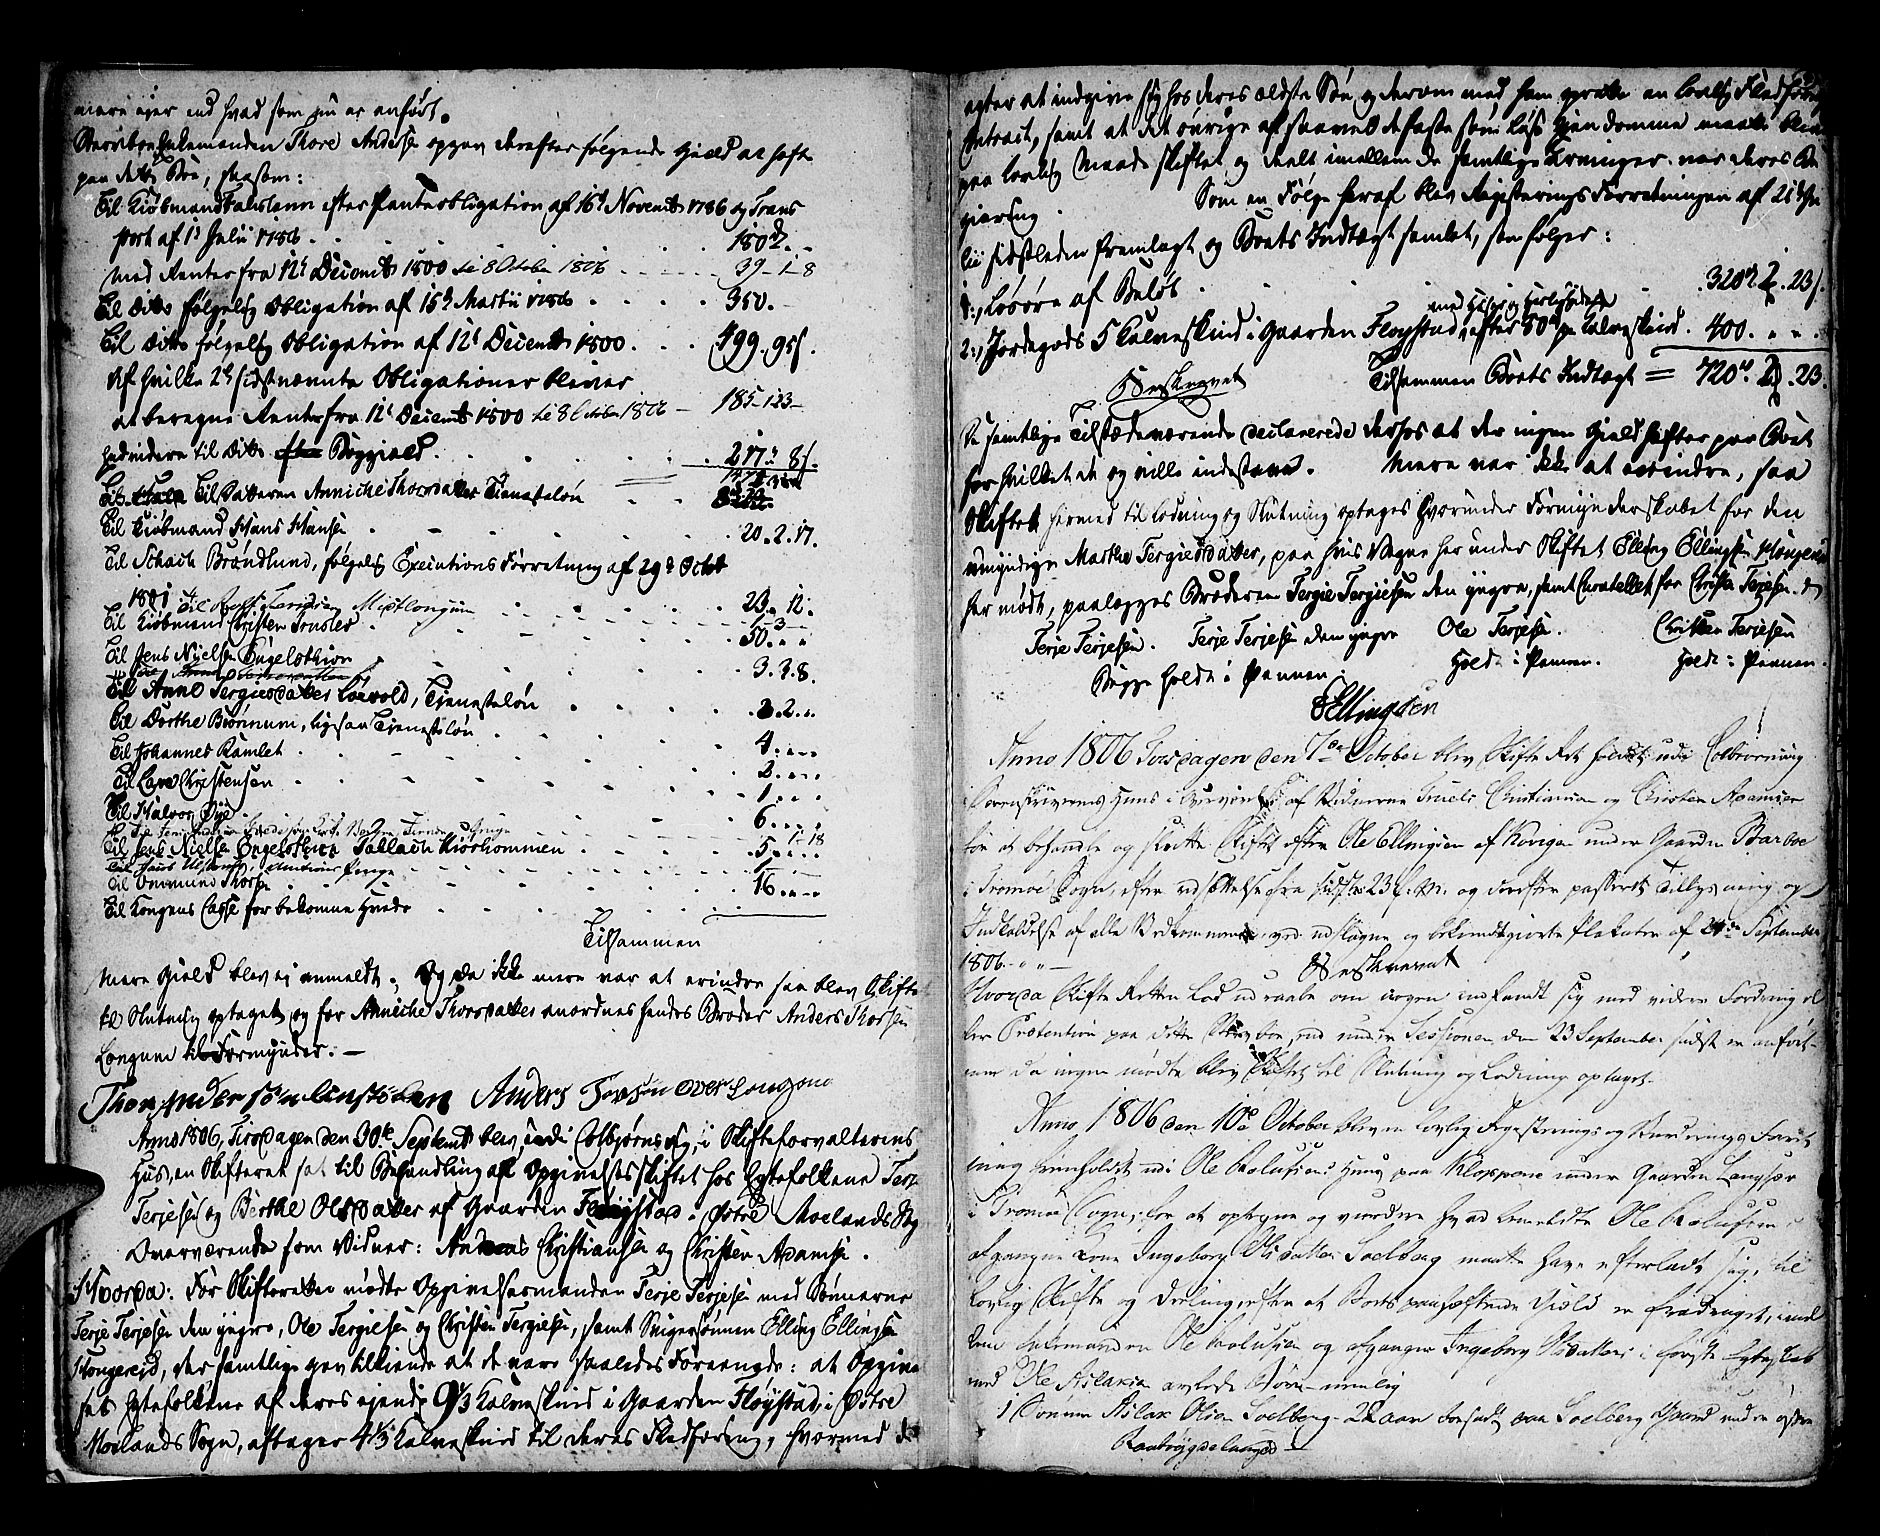 mere ejer end hvad som nu er anført.
Stervboe Enkemanden Thore Andersen opgav derefter følgende Gield at hefte
paa dette Boe, saasom:
Til Kiøbmand efter Panteobligation af 16de Novembr 1786 og Trans
port af 1s Julii 1786 . . . 180 d. „
med Renter fra 12t Decembr 1800 til 8 October 1806 . . . 39 - 1 - 8
Til ditto følgelig Obligation af 15de Martii 1786 . . . 350. -
Til ditto følgelig Obligation af 12t Decembr 1800 . . . 499. 95 s.
Af hvilke 2de sidstnævnte Obligationer bliver
at beregne Renter fra 12t Decembr 1800 til 8 October 1806 - 185 - 123 -
Endvidere til ditto Boggield . . . 217. 8 s.
Til Datteren Anniche Thorsdatter Tienesteløn
Til Kiøbmand Hans Hansen . . . 20. 2. 17.
Til Schach Brøndlund, følgelig Executions Forretning af 29de Octbr
1801 . . . 23. „ 12.
Til Kiøbmand Christen . . . 50. „ „
Til Jens Nielsen Engelsthion . . . 3. 3. 8.
Til Anne Tergiesdatter Løvold, Tieneste løn . . . 3. 2. „.
Til Dorthe Biørnum, ligesaa Tieneste løn . . . 4. „ „
Til Johannes Ramlet . . . 2. „ „
Til Lars Christensen . . . 1. „ „
Til Halvor Øye . . . 6. „ „
Til Jens Nielsen Engelsthion . . . 5. „ „
Til Ommund Thorsen
Til Kongens Casse for bekomne Hvede . . . 16. „ „
Tilsammen
Mere Gield blev ej anmeldt. Og da ikke mere var at erindre saa blev Skiftet
til Slutning optaget og for Anniche Thorsdatter anordnes hendes Broder Anders Thorsen
Longum til Formynder. —
Thor Andersøn Anders Torsøn over Longom
Anno 1806, Tirsdagen den 30te Septembr blev, udi Colbjørnsvig, i Skifteforvalterens
Huus, en Skifteret sat til Behandling af Opgivelsesskiftet hos Egtefolkene Terje
Terjesen og Berthe Olsdatter af Gaarden Fløystad i østre Moelands Sogn
Overværende som Vidner: Anders Christiansen og Christen Adamsen.
Hvorda: For Skifteretten mødte Opgivelsesmanden Terje Terjesen med Sønnerne
Terje Terjesen den yngre, Ole Tergiesen og Christen Tergiesen, samt Svigersønnen Elling Ellingsen
Kongereid, der samtlige gav tilkiende at de vare saaledes Foreenede: at Opgivel
ses Egtefolkene af deres ejende 9⅓ Kalveskind i Gaarden Fløystad i Østre
Moelands Sogn, aftager 4⅓ Kalveskind til deres Fledføring, hvormed de
agter at indgive sig hos deres ældste Søn og derom med ham oprette en lovlig Fledførings
Contract, samt at det øvrige af saavel de faste som løse Ejendomme maatte blive
paa lovlig Maade skiftet og deelt imellem de samtlige Arvinger. var deres Be
giering. Som en Følge heraf blev Registerings Forretningen af 21de Ju
lii sidstleden fremlagt og Boets Indtægt samlet, som følger:
1., Løsøre af Beløb . . . 320 rd 2. 23 s.
med Huse og Herligheder
2., Jordegods 5 Kalveskind i Gaarden Fløystad, efter 80 rd pr Kalveskind . 400. „ „
Tilsammen Boets Indtægt = 720 rd 2. 23.
Beskrevet
De samtlige Tilstædeværende declarerede derhos at der ingen Gield hefter paa Boet
for hvilket de og ville indestaae. Mere var ikke at erindre, saa
Skiftet hermed til Lodning og Slutning optages hvorunder Formynderskabet for den
umyndige Marthe Tergiesdatter, paa hvis Vegne her under Skiftet Elling Ellingsen Kongereid
har mødt, paalægges Broderen Tergie Tergiesen den yngre, samt Curatellet for Christen Terjesen. d
Terje Terjesen. Terje Terjesen den yngre Ole Terjesen. Christen Terjesen
Begge holdt i Pennen Holdt i Pennen. Holdt i Pennen.
Ellingsen
Anno 1806 Torsdagen den 7de October blev Skifte Ret holdt udi Colbiørnsvig
i Sorenskriverens Huus i Overværelse af Vidnerne Truels Christiansen og Christen Adamsen
for at behandle og slutte Skiftet efter Ole Ellingsen af Kovigen under Gaarden Barboe
i Tromøe Sogn, efter udsættelse fra sidste 23 f. M. og derefter passerede Tillysning og
Indkaldelse af alle Vedkommende, ved udslagne og bekiendtgiorte Plakater af 24de September
1806. - „ „ — Beskrevet
Hvorda Skifte Retten lod udraabe om nogen indfandt sig med videre Fordring el
ler Prætention paa dette Sterv boe, end under Sessionen den 23 September sidst er anført -
men da ingen mødte blev Skiftet til Slutning og Lodning optaget.
Anno 1806 den 10de October blev en lovlig Registrerings og Vurderings Forret
ning henholdt udi Ole Rolufsens Huus paa Kloppene under Gaarden Langsæe
i Tromøe Sogn, for at optegne og vurdere hvad bemeldte Ole Rolufsens
afgangne Kone Ingeborg Olsdatter Soelberg maatte have efterladt sig, til
lovlig Skifte og Deeling efter at Boets paahæftende Gield er fradraget, imel
lem Enkemanden Ole Rolufsen og afgangne Ingeborg Olsdatters i første Egteskab
med Ole Aslaksen avlede Børn - nemlig
1 Sønnen Aslax Olsen Soelberg - 22 aar bosadt paa Soelberg Gaard under østre
Raabygdelauget —